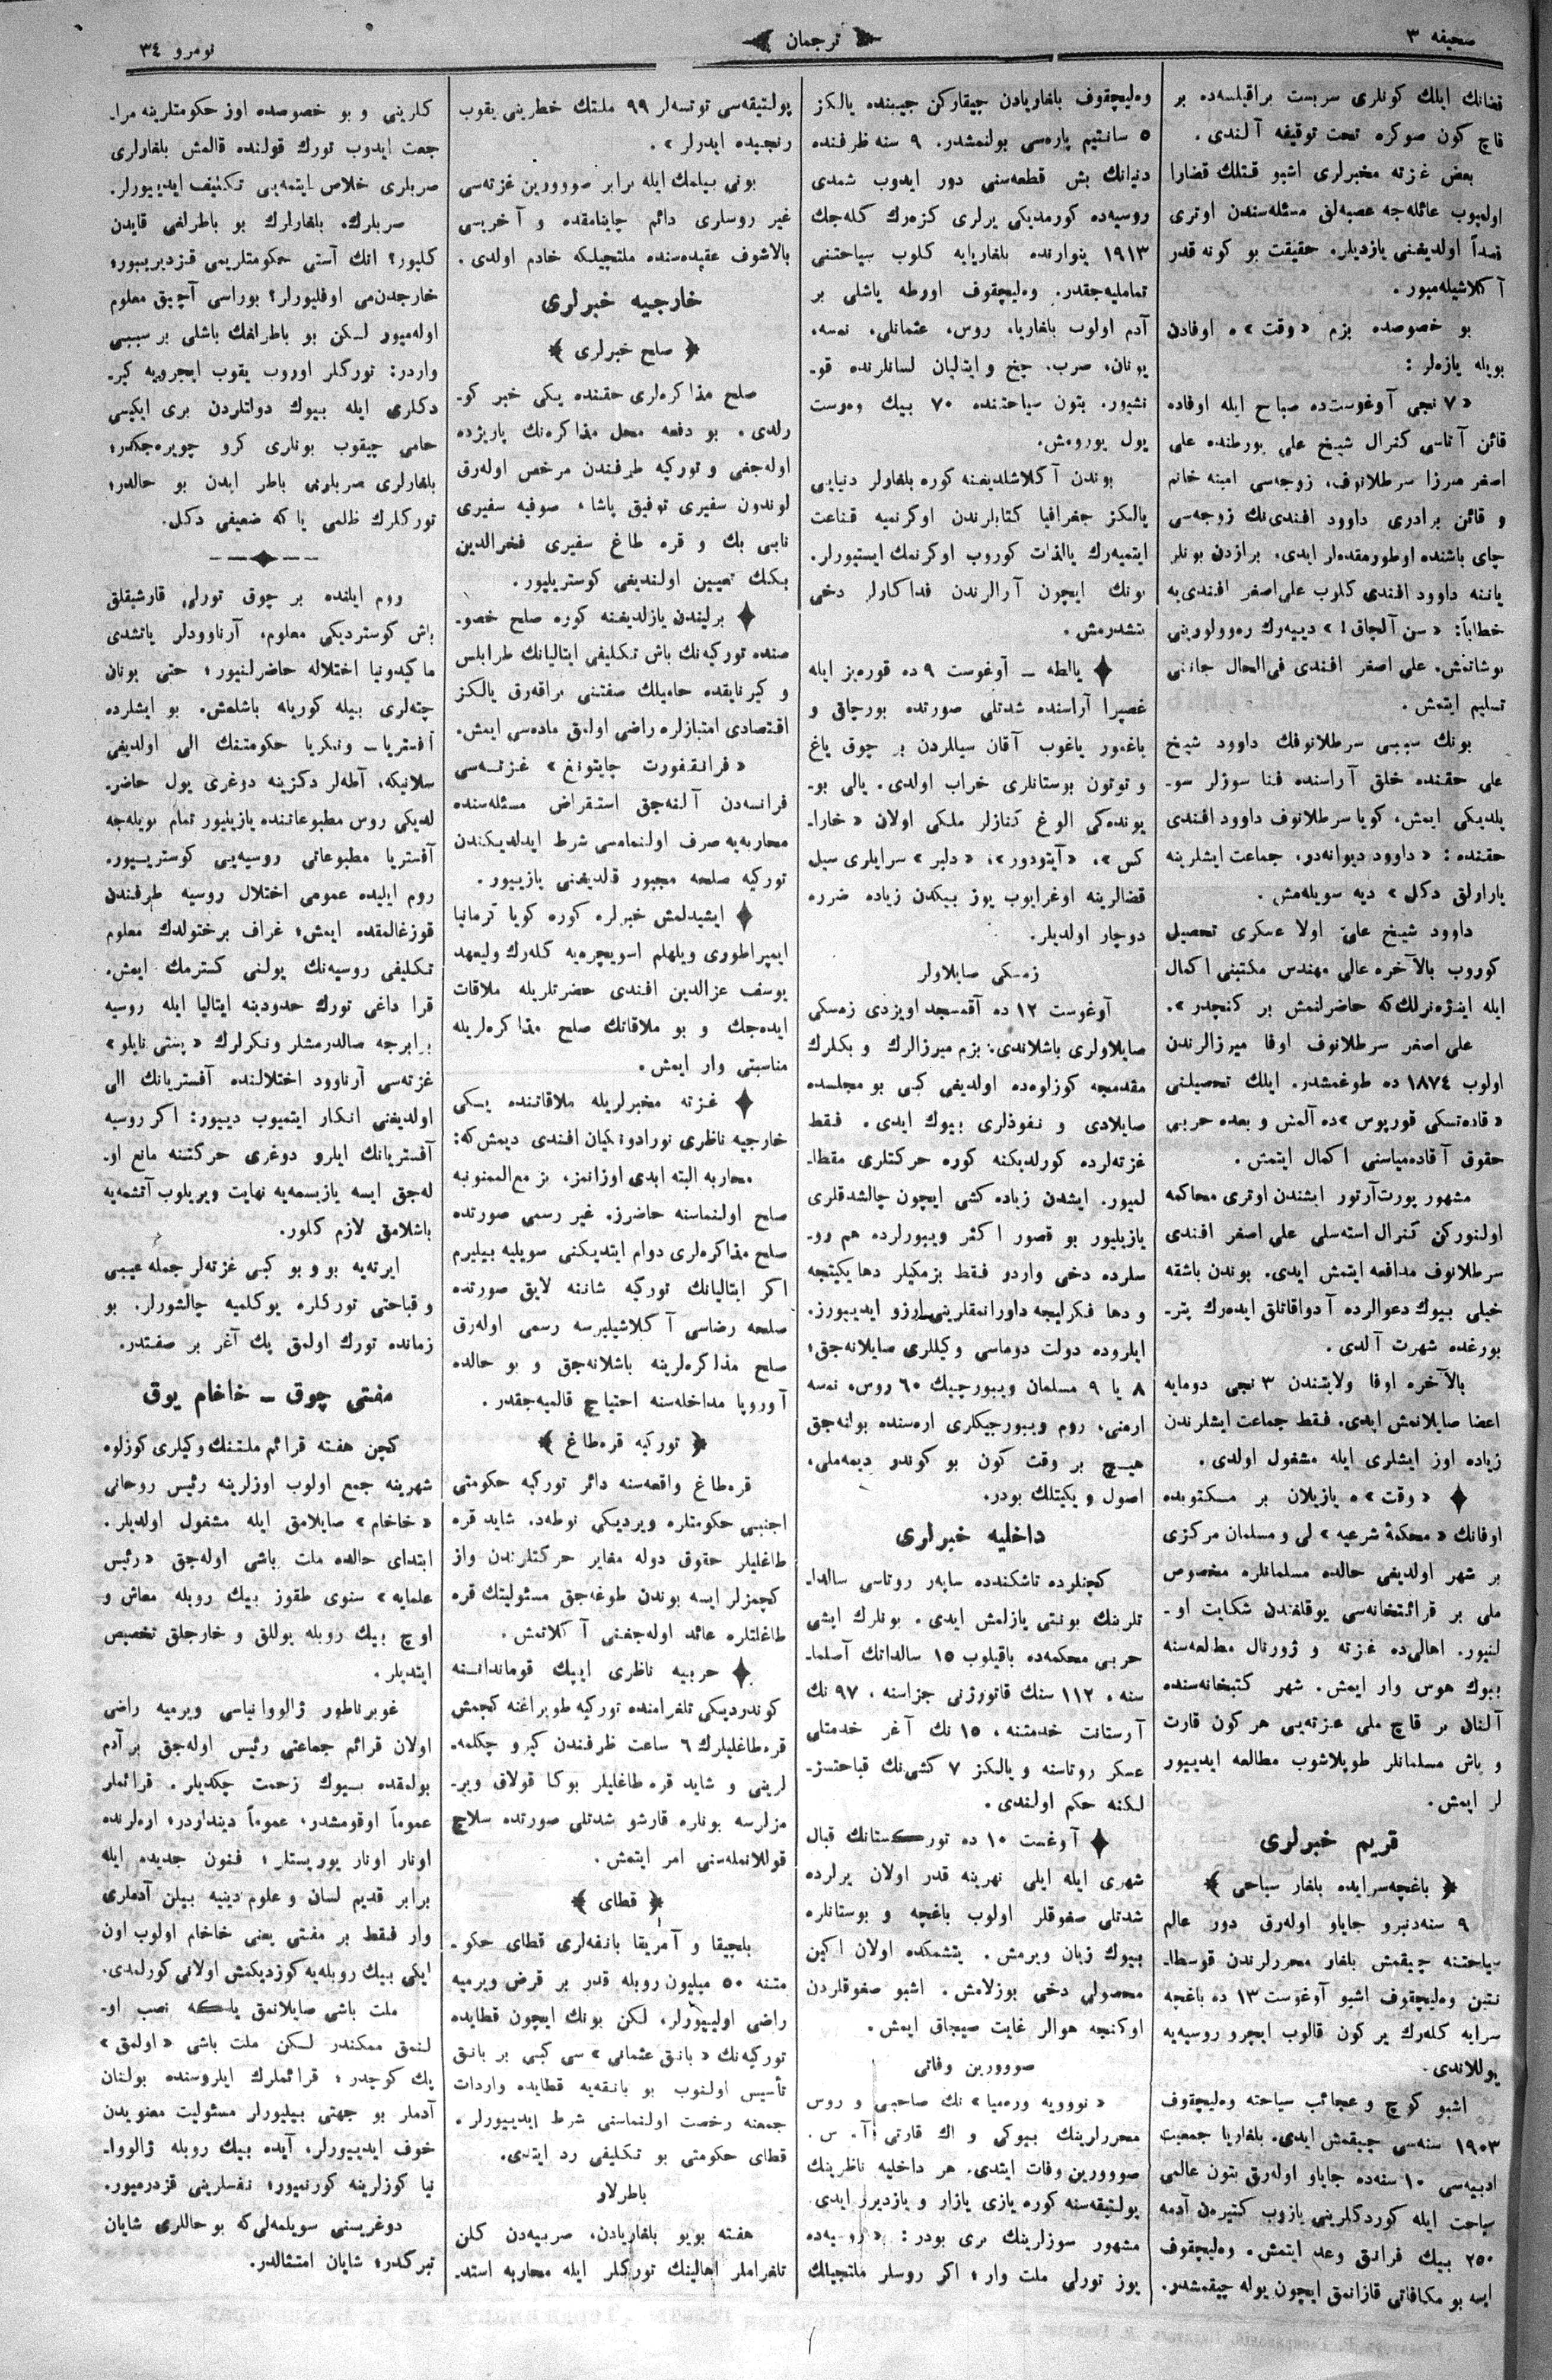 صحیفه ۳
ترجمان
نومرو ۳٤
قضانك ایلك كونلری سربست براقیلسه‌ده بر
قاچ كون صوكره تحت توقیفه آلندی.
بعض غزته مخبرلری اشبو قتلك قضارا
اولمیوب عائله‌جه عصبه‌لق مسئله‌سندن اوتری
قصداً اولدیغنی یازدیلر. حقیقت بو كونه قدر
آكلاشیله‌میور.
بو خصوصده بزم «وقت»ه اوفادن
بویله یازه‌لر:
«۷ نجی آوغوست‌ده صباح ایله اوفاده
قائن آتاسی كنرال شیخ علی یورطنده علی
اصغر میرزا سرطلانوف، زوجه‌سی امینه خانم
و قائن برادری داوود افندی‌نك زوجه‌سی
چای باشنده اوطورمقده‌لر ایدی. برازدن بونلر
یاننه داوود افندی كلوب علی‌اصغر افندی‌یه
خطاباً: «سن آلچاق!» دییه‌رك ره‌وولورینی
بوشاتمش. علی اصغر افندی فی‌الحال جاننی
تسلیم ایتمش.
بونك سببی سرطلانوفك داوود شیخ
علی حقنده خلق آراسنده فنا سوزلر سو-
یلدیكی ایمش، كویا سرطلانوف داوود افندی
حقنده: «داوود دیوانه‌در، جماعت ایشلرینه
یارارلق دكل» دیه سویله‌مش.
داوود شیخ علی اولا عسكری تحصیل
كوروب بالآخره عالی مهندس مكتبنی اكمال
ایله اینژه‌نرلك‌كه حاضرلنمش بر كنجدر».
علی اصغر سرطلانوف اوفا میرزالرندن
اولوب ۱۸۷٤ ده طوغمشدر. ایلك تحصیلنی
«قاده‌تسكی قورپوس»ده آلمش و بعده حربی
حقوق آقاده‌میاسنی اكمال ایتمش.
مشهور پورت‌آرتور ایشندن اوتری محاكمه
اولنوركن كنرال استه‌سلی علی اصغر افندی
سرطلانوف مدافعه ایتمش ایدی. بوندن باشقه
خیلی بیوك دعوالرده آدواقاتلق ایده‌رك پتر-
بورغده شهرت آلدی.
بالآخره اوفا ولایتندن ۳ نجی دومایه
اعضا صایلانمش ایدی. فقط جماعت ایشلرندن
زیاده اوز ایشلری ایله مشغول اولدی.
✦ «وقت»ه یازیلان بر مكتوبده
اوفانك «محكمهٔ شرعیه» لی و مسلمان مركزی
بر شهر اولدیغی حالده مسلمانلره مخصوص
ملی بر قرائتخانه‌سی یوقلغندن شكایت او-
لنیور. اهالی‌ده غزته و ژورنال مطالعه‌سنه
بیوك هوس وار ایمش. شهر كتبخانه‌سنده
آلنان بر قاچ ملی غزته‌یی هر كون قارت
و یاش مسلمانلر طوپلاشوب مطالعه ایدییور
لر ایمش.
قریم خبرلری
﴿ باغچه‌سرایده بلغار سیاحی ﴾
۹ سنه‌دنبرو جایاو اوله‌رق دور عالم
سیاحتنه چیقمش بلغار محررلرندن قوسطا-
نتین وه‌لیچقوف اشبو آوغوست ۱۳ ده باغچه
سرایه كله‌رك بر كون قالوب ایچرو روسیه‌یه
یوللاندی.
اشبو كوچ و عجائب سیاحته وه‌لیچقوف
۱۹۰۳ سنه‌سی چیقمش ایدی. بلغاریا جمعیت
ادبیه‌سی ۱۰ سنه‌ده جایاو اوله‌رق بتون عالمی
سیاحت ایله كوردكلرینی یازوب كتیره‌ن آدمه
۲۵۰ بیك فرانق وعد ایتمش. وه‌لیچقوف
ایسه بو مكافاتی قازانمق ایچون یوله چیقمشدر.
وه‌لیچقوف بلغاریادن چیقاركن جیبنده یالكز
۵ سانتیم پاره‌سی بولنمشدر. ۹ سنه ظرفنده
دنیانك بش قطعه‌سنی دور ایدوب شمدی
روسیه‌ده كورمدیكی یرلری كزه‌رك كله‌جك
۱۹۱۳ ینوارنده بلغاریایه كلوب سیاحتنی
تماملیه‌جقدر. وه‌لیچقوف اورطه یاشلی بر
آدم اولوب بلغاریا، روس، عثمانلی، نمسه،
یونان، صرب، چخ و ایتالیان لسانلرنده قو-
نشیور. بتون سیاحتنده ۷۰ بیك وه‌رست
یول یورومش.
بوندن آكلاشلدیغنه كوره بلغارلر دنیایی
یالكز جغرافیا كتابلرندن اوكرنمیه قناعت
ایتمیه‌رك بالذات كوروب اوكرنمك ایستیورلر.
بونك ایچون آرالرندن فداكارلر دخی
یتشدرمش.
✦ یالطه — آوغوست ۹ ده قوره‌یز ایله
غصپرا آراسنده شدتلی صورتده بورچاق و
یاغمور یاغوب آقان سیللردن بر چوق باغ
و توتون بوستانلری خراب اولدی. یالی بو-
یونده‌كی الوغ كنازلر ملكی اولان «خارا-
كس»، «آیتودور»، «دلبر» سرایلری سیل
قضالرینه اوغرایوب یوز بیكدن زیاده ضرره
دوچار اولدیلر.
زمسكی صایلاولر
آوغوست ۱۲ ده آقمسجد اویزدی زمسكی
صایلاولری باشلاندی: بزم میرزالرك و بكلرك
مقدمجه كوزلوه‌ده اولدیغی كبی بو مجلسده
صایلادی و نفوذلری بیوك ایدی. فقط
غزته‌لرده كورلدیكنه كوره حركتلری مقطا-
لمیور. ایشدن زیاده كشی ایچون چالشدقلری
یازیلیور بو قصور اكثر ویبورلرده هم رو-
سلرده دخی واردر فقط بزمكیلر دها یكیتجه
و دها فكرلیجه داورانمقلرینی ارزو ایدییورز.
ایلروده دولت دوماسی وكیللری صایلانه‌جق؛
۸ یا ۹ مسلمان ویبورچیك ۶۰ روس، نمسه
ارمنی، روم ویبورجیكلری اره‌سنده بولنه‌جق
هیچ بر وقت كون بو كوندر دیمه‌ملی،
اصول و یكیتلك بودر.
داخلیه خبرلری
كچنلرده تاشكندده ساپه‌ر روتاسی سالدا-
تلرینك بونتی یازلمش ایدی. بونلرك ایشی
حربی محكمه‌ده باقیلوب ۱۵ سالداتك آصلما-
سنه، ۱۱۲ سنك قاتورژنی جزاسنه، ۹۷ نك
آرستانت خدمتنه، ۱۵ نك آغر خدمتلی
عسكر روتاسنه و یالكز ۷ كشی‌نك قباحتسز-
لكنه حكم اولندی.
✦ آوغست ۱۰ ده توركستانك قبال
شهری ایله ایلی نهرینه قدر اولان یرلرده
شدتلی صغوقلر اولوب باغچه و بوستانلره
بیوك زیان ویرمش. یتشمكده اولان اكین
محصولی دخی بوزلامش. اشبو صغوقلردن
اوكنجه هوالر غایت صیجاق ایمش.
صووورین وفاتی
«نووویه وره‌میا» نك صاحبی و روس
محررلرینك بیوكی و اك قارتی آ. س.
صووورین وفات ایتدی. هر داخلیه ناظرینك
پولتیقه‌سنه كوره یازی یازار و یازدیرر ایدی.
مشهور سوزلرینك بری بودر: «روسیه‌ده
یوز تورلی ملت وار؛ اكر روسلر ملتجیلك
پولتیقه‌سی توتسه‌لر ۹۹ ملتك خطرینی یقوب
رنجیده ایدرلر».
بونی بیلمك ایله برابر صووورین غزته‌سی
غیر روسلری دائم چاینامقده و آخریسی
بالاشوف عقیده‌سنده ملتجیلكه خادم اولدی.
خارجیه خبرلری
﴿ صلح خبرلری ﴾
صلح مذاكره‌لری حقنده یكی خبر كو-
رلدی. بو دفعه محل مذاكره‌نك پاریژده
اوله‌جغی و توركیه طرفندن مرخص اوله‌رق
لوندون سفیری توفیق پاشا، صوفیه سفیری
نابی بك و قره طاغ سفیری فخرالدین
بكك تعیین اولندیغی كوستریلیور.
✦ برلیندن یازلدیغنه كوره صلح خصو-
صنده توركیه‌نك باش تكلیفی ایتالیانك طرابلس
و كیرنایقده حامیلك صفتنی براقه‌رق یالكز
اقتصادی امتیازلره راضی اولمق ماده‌سی ایمش.
«فرانقفورت چایتونغ» غزته‌سی
فرانسه‌دن آلنه‌جق استقراض مسئله‌سنده
محاربه‌یه صرف اولنمامسی شرط ایدلدیكندن
توركیه صلحه مجبور قلدیغنی یازییور.
✦ ایشیدلمش خبرلره كوره كویا كرمانیا
ایمپراطوری ویلهلم اسویچره‌یه كله‌رك ولیعهد
یوسف عزالدین افندی حضرتلریله ملاقات
ایده‌جك و بو ملاقاتك صلح مذاكره‌لریله
مناسبتی وار ایمش.
✦ غزته مخبرلریله ملاقاتنده یسكی
خارجیه ناظری نورادونكیان افندی دیمش‌كه:
محاربه البته ابدی اوزانمز، بز مع‌الممنونیه
صلح اولنماسنه حاضرز. غیر رسمی صورتده
صلح مذاكره‌لری دوام ایتدیكنی سویلیه بیلیرم
اكر ایتالیانك توركیه شاننه لایق صورتده
صلحه رضاسی آكلاشیلیرسه رسمی اوله‌رق
صلح مذاكره‌لرینه باشلانه‌جق و بو حالده
آوروپا مداخله‌سنه احتیاج قالمیه‌جقدر.
﴿ توركیه قره‌طاغ ﴾
قره‌طاغ واقعه‌سنه دائر توركیه حكومتی
اجنبی حكومتلره ویردیكی نوطه‌ده. شاید قره
طاغلیلر حقوق دوله مغایر حركتلرندن واز
كچمزلر ایسه بوندن طوغه‌جق مسئولیتك قره
طاغلتلره عائد اوله‌جغنی آكلاتمش.
✦ حربیه ناظری ایپك قوماندانسنه
كوندردیكی تلغرامنده توركیه طوپراغنه كچمش
قره‌طاغلیلرك ۶ ساعت ظرفندن كیرو چكلمه-
لرینی و شاید قره‌طاغلیلر بوكا قولاق ویر-
مزلرسه بونلره قارشو شدتلی صورتده سلاح
قوللانملمه‌سنی امر ایتمش.
﴿ قطای ﴾
بلجیقا و آمریقا بانقه‌لری قطای حكو-
متنه ۵۰ میلیون روبله قدر بر قرض ویرمیه
راضی اولییورلر، لكن بونك ایچون قطایده
توركیه‌نك «بانق عثمانی» سی كبی بر بانق
تأسیس اولنوب بو بانقه‌یه قطایده واردات
جمعنه رخصت اولنماسنی شرط ایدییورلر.
قطای حكومتی بو تكلیفی رد ایتدی.
باطرلار
هفته بویو بلغاریادن، صربیه‌دن كلن
تلغراملر اهالینك توركلر ایله محاربه استد-
كلرینی و بو خصوصده اوز حكومتلرینه مرا-
جعت ایدوب تورك قولنده قالمش بلغارلری
صربلری خلاص ایتمه‌یی تكلیف ایدییورلر.
صربلرك، بلغارلرك بو باطرلغی قایدن
كلیور؟ انك آستی حكومتلریمی قزدیرییور،
خارجدن‌می اوفلیورلر؟ بوراسی آچیق معلوم
اوله‌میور لكن بو باطرلغك باشلی بر سببی
واردر: توركلر اوروب یقوب ایچرویه كیر-
دكلری ایله بیوك دولتلردن بری ایكیسی
حامی چیقوب بونلری كرو چویره‌جكدر؛
بلغارلری صربلرنی باطر ایدن بو حالدر؛
توركلرك ظلمی یاكه ضعیفی دكل.
روم ایلنده بر چوق تورلی قارشیقلق
باش كوستردیكی معلوم، آرناوودلر یاتشدی
ماكیدونیا اختلاله حاضرلنیور؛ حتی یونان
چته‌لری بیله كوریله باشلامش. بو ایشلرده
آفستریا- ونكریا حكومتنك الی اولدیغی
سلانیكه، آطه‌لر دكزینه دوغری یول حاضر-
لدیكی روس مطبوعاتنده یازیلیور تمام بویله‌جه
آفستریا مطبوعاتی روسیه‌یی كوستریییور.
روم ایلیده عمومی اختلال روسیه طرفندن
قوزغالمقده ایمش؛ غراف برختولدك معلوم
تكلیفی روسیه‌نك یولنی كسترمك ایمش.
قرا داغی تورك حدودینه ایتالیا ایله روسیه
برابرجه صالدرمشلر ونكرلرك «پشتی نایلو»
غزته‌سی آرناوود اختلالنده آفستریانك الی
اولدیغنی انكار ایتمیوب دییور: اكر روسیه
آفستریانك ایلرو دوغری حركتنه مانع او-
له‌جق ایسه یازیسمه‌یه نهایت ویریلوب آتشمه‌یه
باشلامق لازم كلور.
ایرته‌یه بو و بو كبی غزته‌لر جمله عیبی
و قباحتی توركلره یوكلمیه چالشورلر. بو
زمانده تورك اولمق پك آغر بر صفتدر.
مفتی چوق — خاخام یوق
كچن هفته قرائم ملتنك وكیلری كوزلوه
شهرینه جمع اولوب اوزلرینه رئیس روحانی
«خاخام» صایلامق ایله مشغول اولدیلر.
ابتدای حالده ملت باشی اوله‌جق «رئیس
علمایه» سنوی طقوز بیك روبله معاش و
اوچ بیك روبله یوللق و خارجلق تخصیص
ایتدیلر.
غوبرناطور ژالووانیاسی ویرمیه راضی
اولان قرائم جماعتی رئیس اوله‌جق بر آدم
بولمقده بیوك زحمت چكدیلر. قرائملر
عموماً اوقومشدر، عموماً دینداردر؛ اره‌لرنده
اونار اونار یوریستلر؛ فنون جدیده ایله
برابر قدیم لسان و علوم دینیه بیلن آدملری
وار فقط بر مفتی یعنی خاخام اولوب اون
ایكی بیك روبله‌یه كوزدیكمش اولانی كورلمدی.
ملت باشی صایلانمق یاكه نصب او-
لنمق ممكندر لكن ملت باشی «اولمق»
پك كوجدر؛ قرائملرك ایلروسنده بولنان
آدملر بو جهتی بیلیورلر مسئولیت معنویدن
خوف ایدییورلر، آیده بیك روبله ژالووا-
نیا كوزلرینه كورنمیور، نفسلرینی قزدرمیور.
دوغریسنی سویلمه‌لی‌كه بو حاللری شایان
تبركدر، شایان امتثالدر.